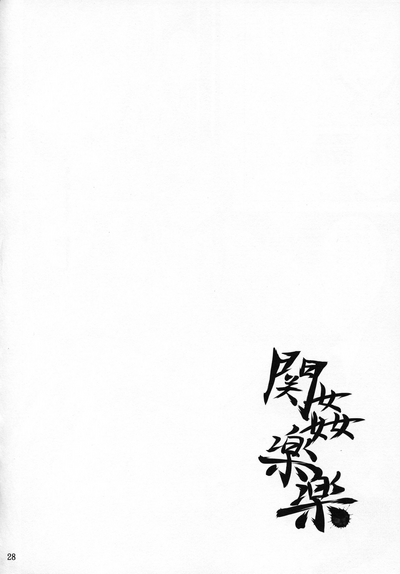 関姦楽楽
28